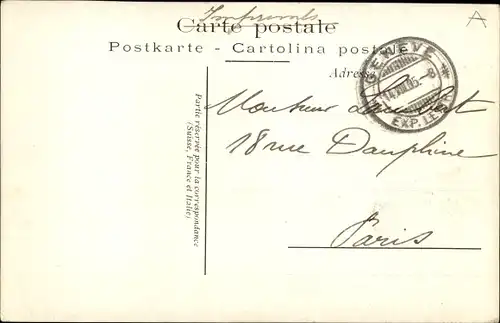 Imprimés
Carte postale
Postkarte - Cartolina postale
Adresse
A
GENÈVE
EXP. LETT.
Partie réservée pour la correspondance
(Suisse, France et Italie)
Monsieur
18 rue Dauphine
Paris